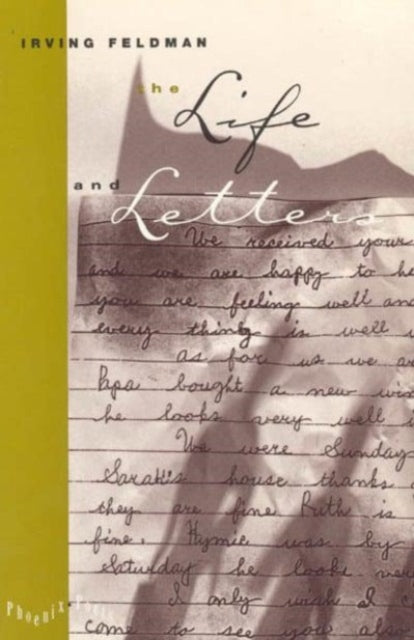 IRVING FELDMAN
the
Life
and
Letters
We received yours
and we are happy to he
you are feeling well and
every thing is well
as for us we a
Papa bought a new win
he looks very well
We were Sunday
Sarah's house thanks
they are fine Ruth is
fine. Hymie was by
Saturday he looks very
I only wish I c
come to see you
Phoenix